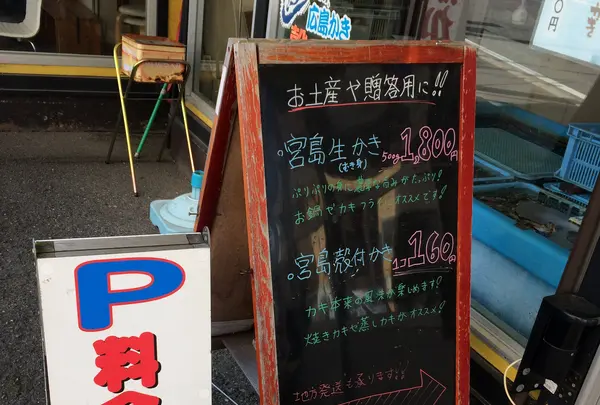 広島かき
お土産や贈答用に!!
・宮島生かき 500g 1,800円
(むき身)
ぷりぷりの身に濃厚な旨みがたっぷり!
お鍋やカキフライにオススメです!
・宮島殻付かき 1コ 160円
カキ本来の風味が楽しめます!
焼きカキや蒸しカキがオススメ!
地方発送も承ります!!
P
料